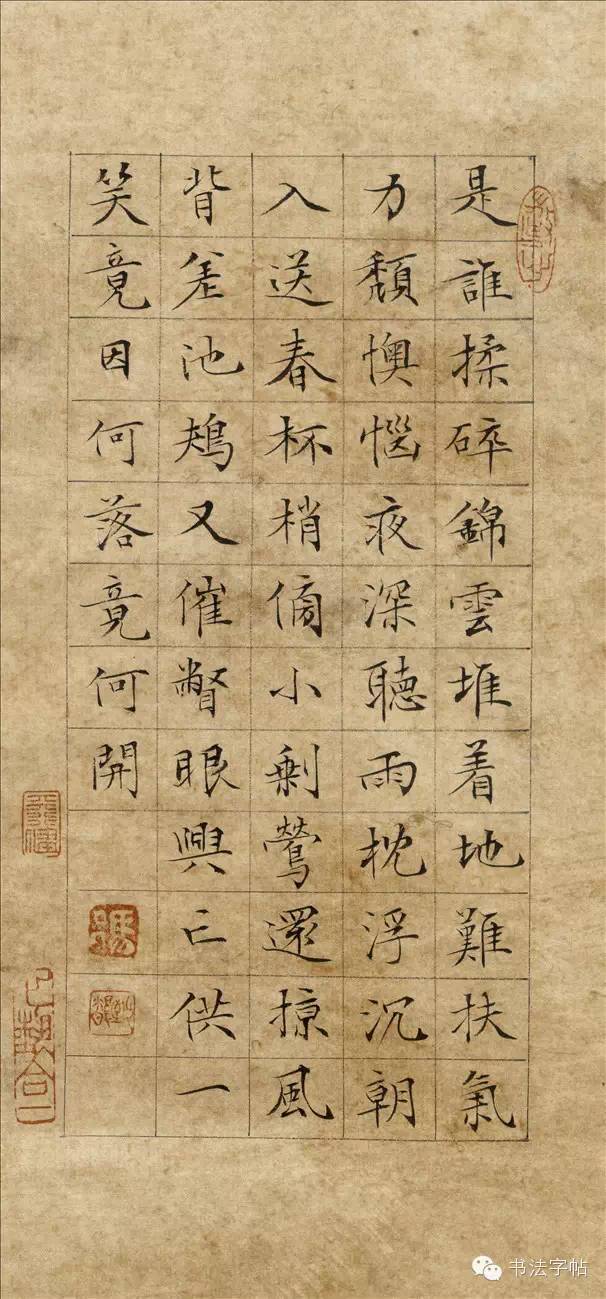 是誰揉碎錦雲堆着地難扶氣
力頹懊惱夜深聽雨枕浮沉朝
入送春杯梢傍小剩鶯還掠風
背差池鴂又催瞥眼興亡供一
笑竟因何落竟何開
书法字帖